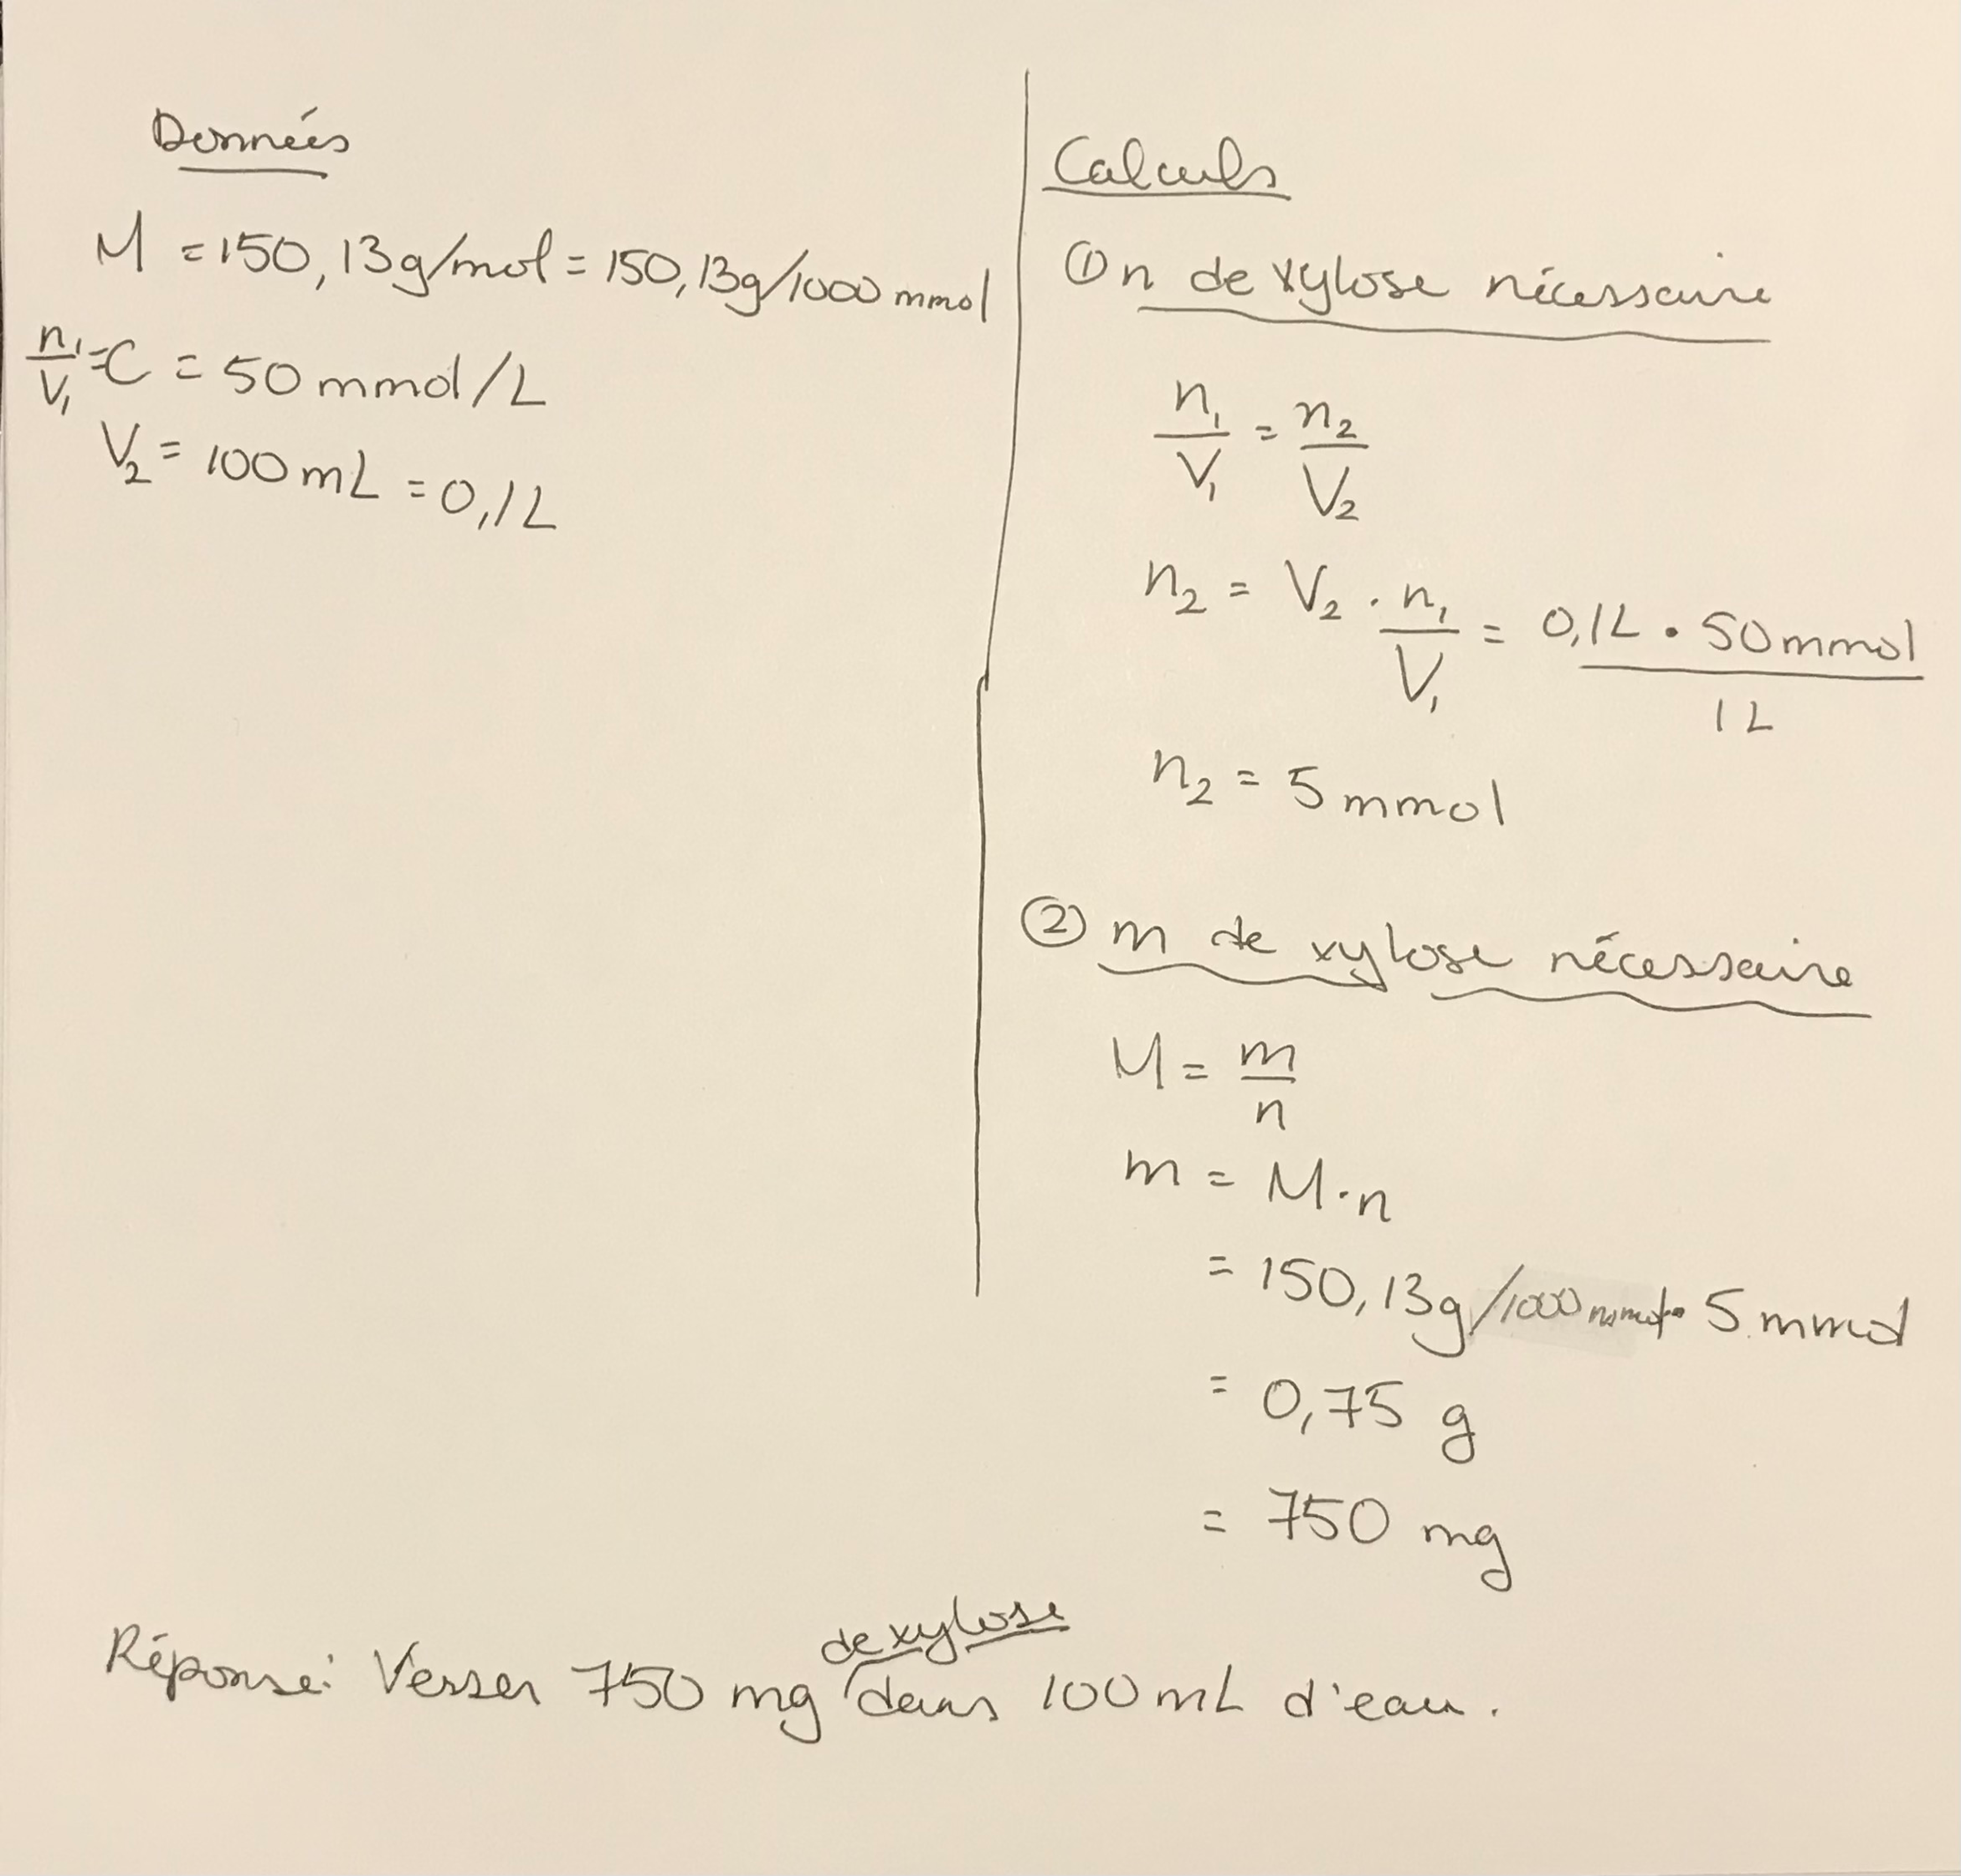 Données
M = 150,13g/mol = 150,13g/1000 mmol
n₁/V₁ = C = 50 mmol/L
V₂ = 100 mL = 0,1L
Calculs
① n de xylose nécessaire
n₁/V₁ = n₂/V₂
n₂ = V₂ · n₁/V₁ = 0,1L · 50mmol / 1L
n₂ = 5 mmol
② m de xylose nécessaire
M = m/n
m = M·n
= 150,13g/1000 mmol · 5 mmol
= 0,75 g
= 750 mg
Réponse: Verser 750 mg de xylose dans 100 mL d'eau.